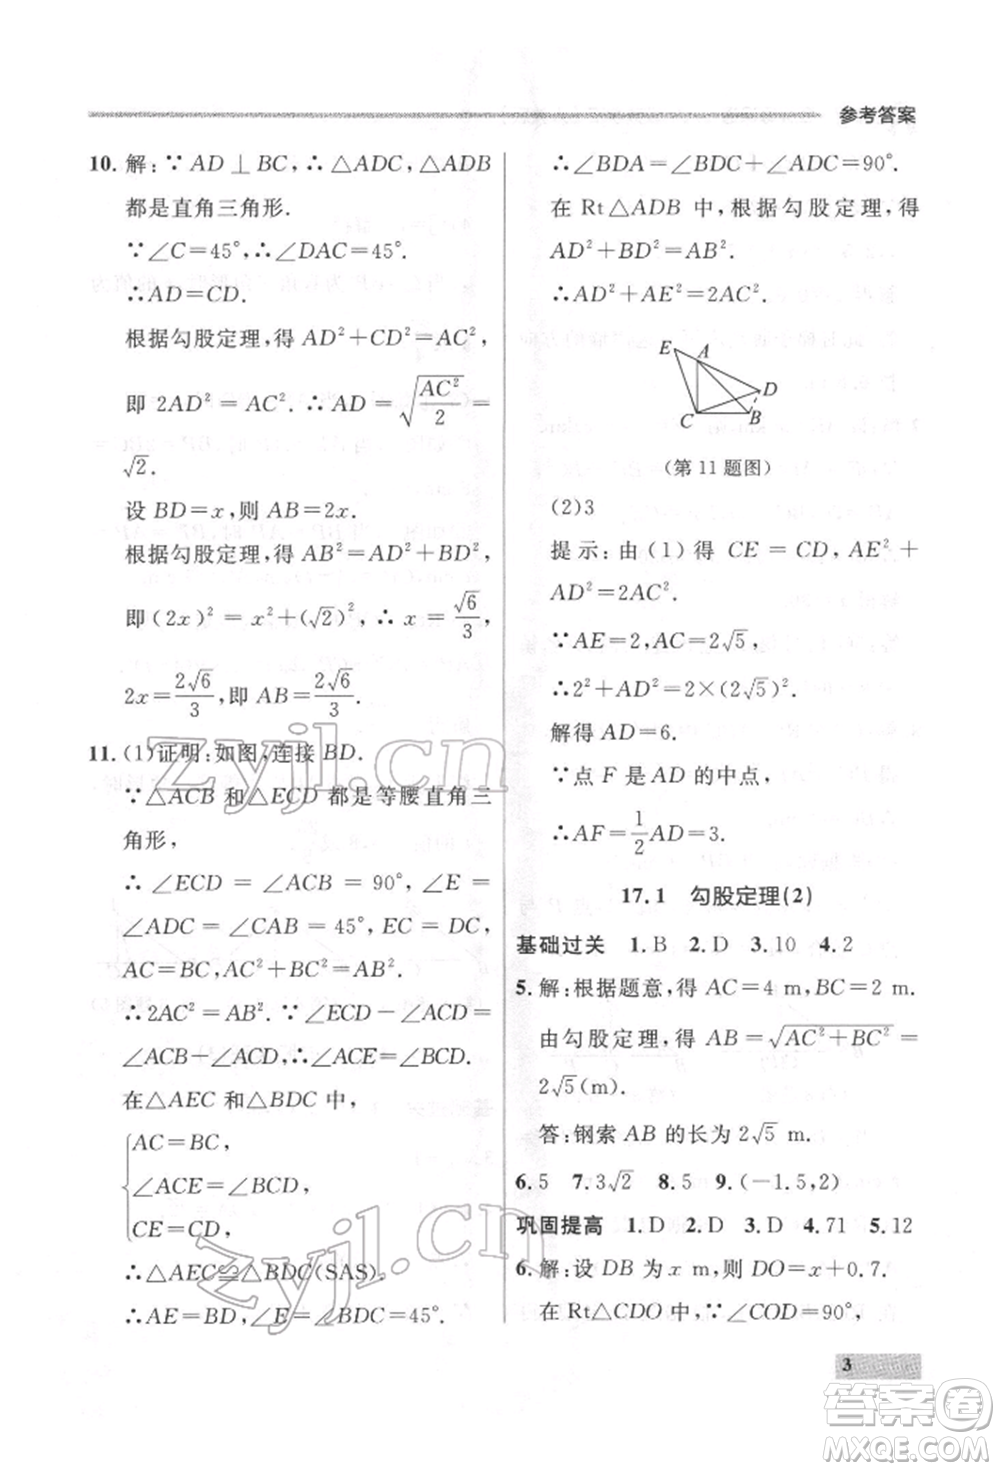 参考答案
10. 解:∵AD⊥BC,∴△ADC,△ADB
都是直角三角形.
∵∠C=45°,∴∠DAC=45°.
∴AD=CD.
根据勾股定理,得 AD²+CD²=AC²,
即 2AD²=AC². ∴AD=√(AC²/2)=
√2.
设 BD=x,则 AB=2x.
根据勾股定理,得 AB²=AD²+BD²,
即(2x)²=x²+(√2)²,∴x=√6/3,
2x=2√6/3,即 AB=2√6/3.
11. (1)证明:如图,连接 BD.
∵△ACB 和△ECD 都是等腰直角三
角形,
∴∠ECD=∠ACB=90°,∠E=
∠ADC=∠CAB=45°,EC=DC,
AC=BC,AC²+BC²=AB².
∴2AC²=AB². ∵∠ECD-∠ACD=
∠ACB-∠ACD,∴∠ACE=∠BCD.
在△AEC 和△BDC 中,
{AC=BC,
∠ACE=∠BCD,
CE=CD,
∴△AEC≌△BDC(SAS).
∴AE=BD,∠E=∠BDC=45°.
∴∠BDA=∠BDC+∠ADC=90°.
在 Rt△ADB 中,根据勾股定理,得
AD²+BD²=AB².
∴AD²+AE²=2AC².
E A D C B
(第 11 题图)
(2)3
提示:由(1)得 CE=CD,AE²+
AD²=2AC².
∵AE=2,AC=2√5,
∴2²+AD²=2×(2√5)².
解得 AD=6.
∵点 F 是 AD 的中点,
∴AF=1/2AD=3.
17.1 勾股定理(2)
基础过关 1.B 2.D 3.10 4.2
5. 解:根据题意,得 AC=4 m,BC=2 m.
由勾股定理,得 AB=√(AC²+BC²)=
2√5(m).
答:钢索 AB 的长为 2√5 m.
6.5 7.3√2 8.5 9.(-1.5,2)
巩固提高 1.D 2.D 3.D 4.71 5.12
6. 解:设 DB 为 x m,则 DO=x+0.7.
在 Rt△CDO 中,∵∠COD=90°,
3
zyjl.cn
zyjl.cn
答案圈
MXQE.COM